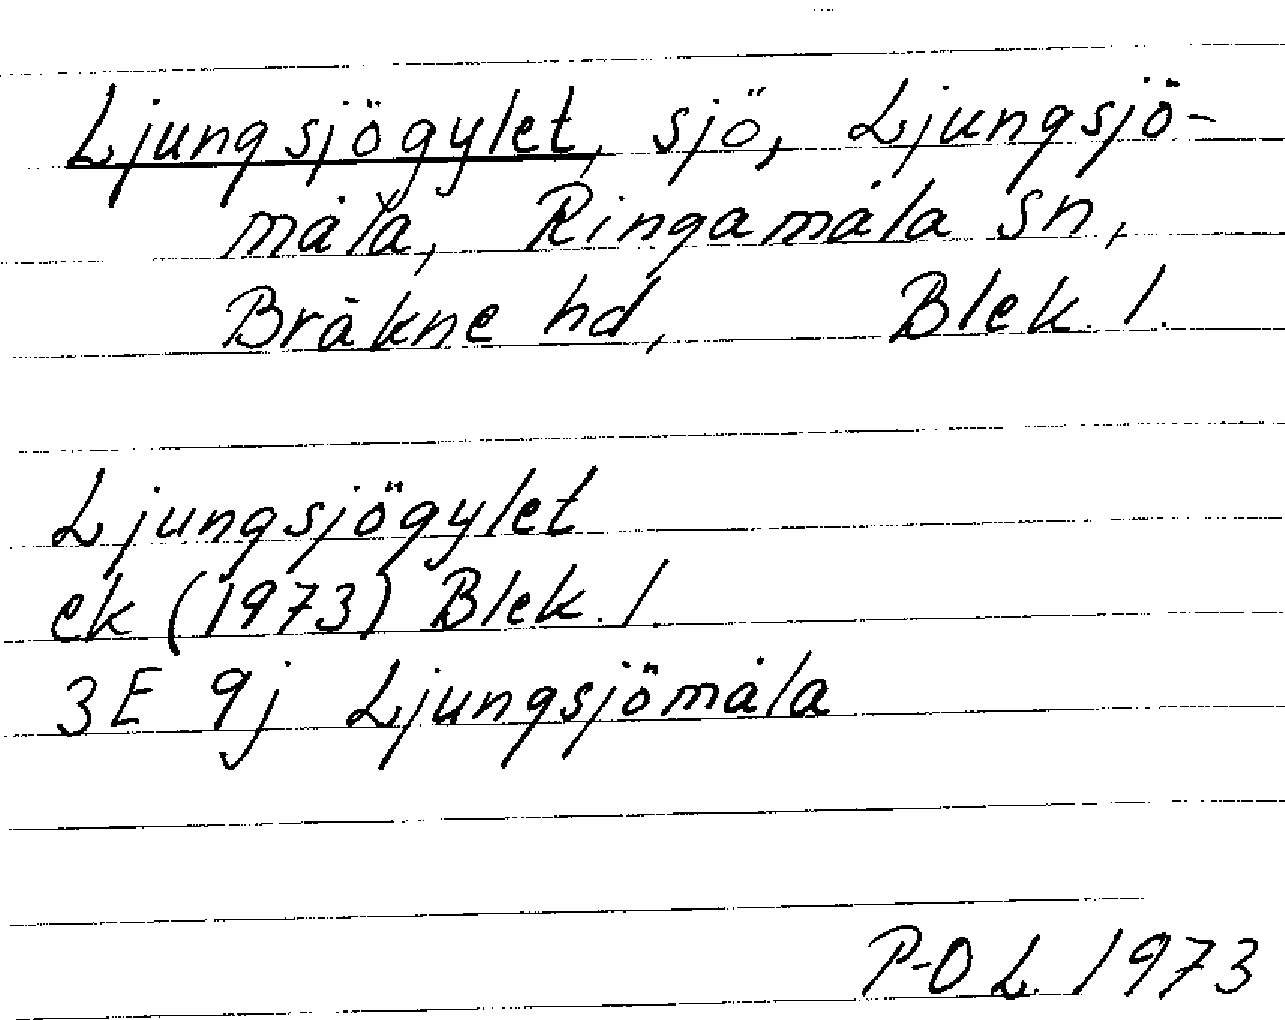 Ljungsjögylet, sjö, Ljungsjö-
måla, Ringamåla sn,
Bräkne hd, Blek. l.
Ljungsjögylet
ek (1973) Blek. l.
3E 9j Ljungsjömåla
P-O L. 1973